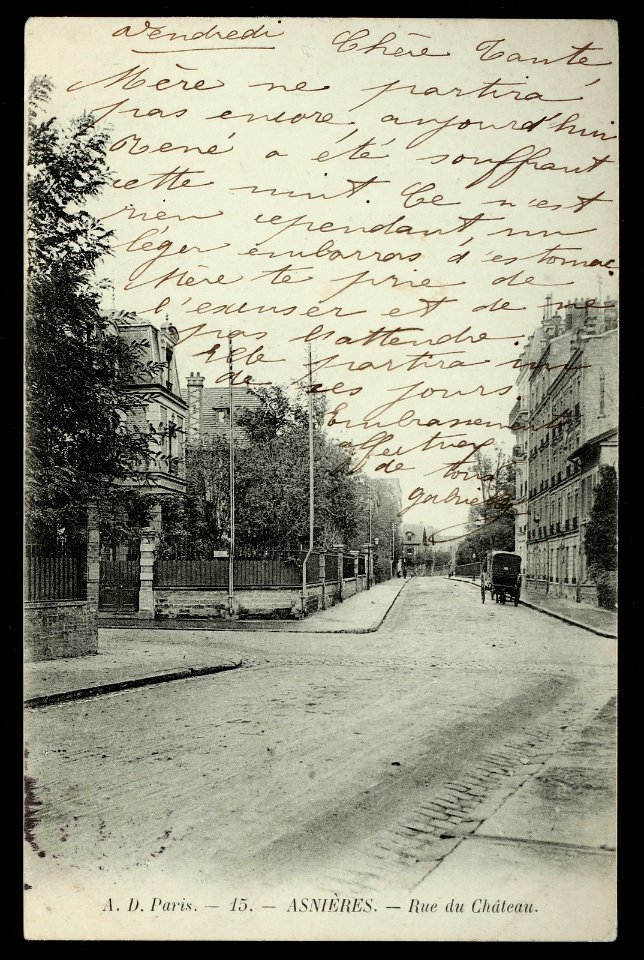 Vendredi Chère Tante
Mère ne partira
pas encore aujourd'hui
René a été souffrant
cette nuit Ce n'est
rien cependant un
léger embarras d'estomac
Mère te prie de
l'excuser et de ne
pas l'attendre
Elle partira un
de ces jours.
Embrassements
affectueux
de tous
Gabrielle
A. D. Paris. – 15. – ASNIÈRES. – Rue du Château.